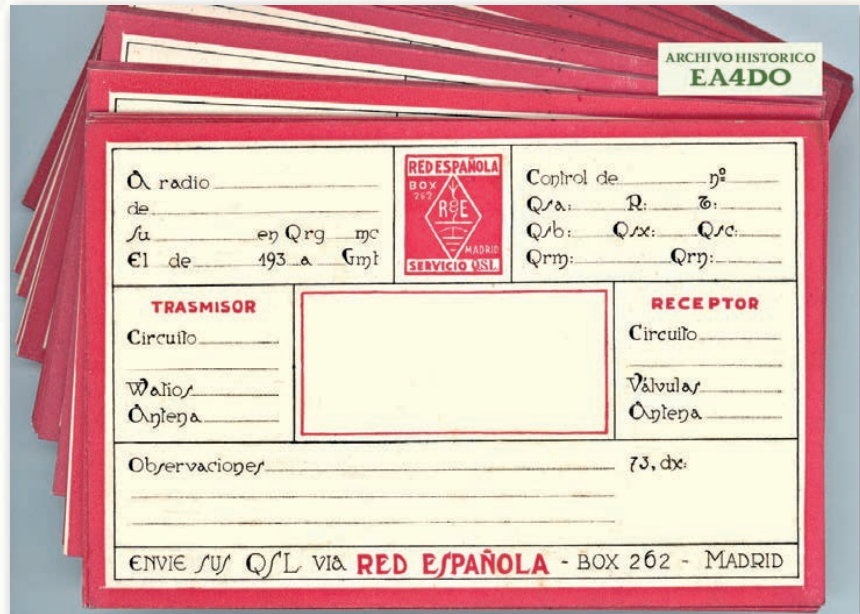 ARCHIVO HISTORICO
EA4DO
A radio
de
Su en Qrg mc
El de 193 a Gmt
RED ESPAÑOLA
BOX
262
R&E
MADRID
SERVICIO QSL
Control de nº
Qsa: R: T:
Qsb: Qsx: Qsc:
Qrm: Qrn:
TRASMISOR
Circuito
Watios
Antena
RECEPTOR
Circuito
Válvulas
Antena
Observaciones 73, dx:
ENVIE SUS QSL VIA RED ESPAÑOLA - BOX 262 - MADRID